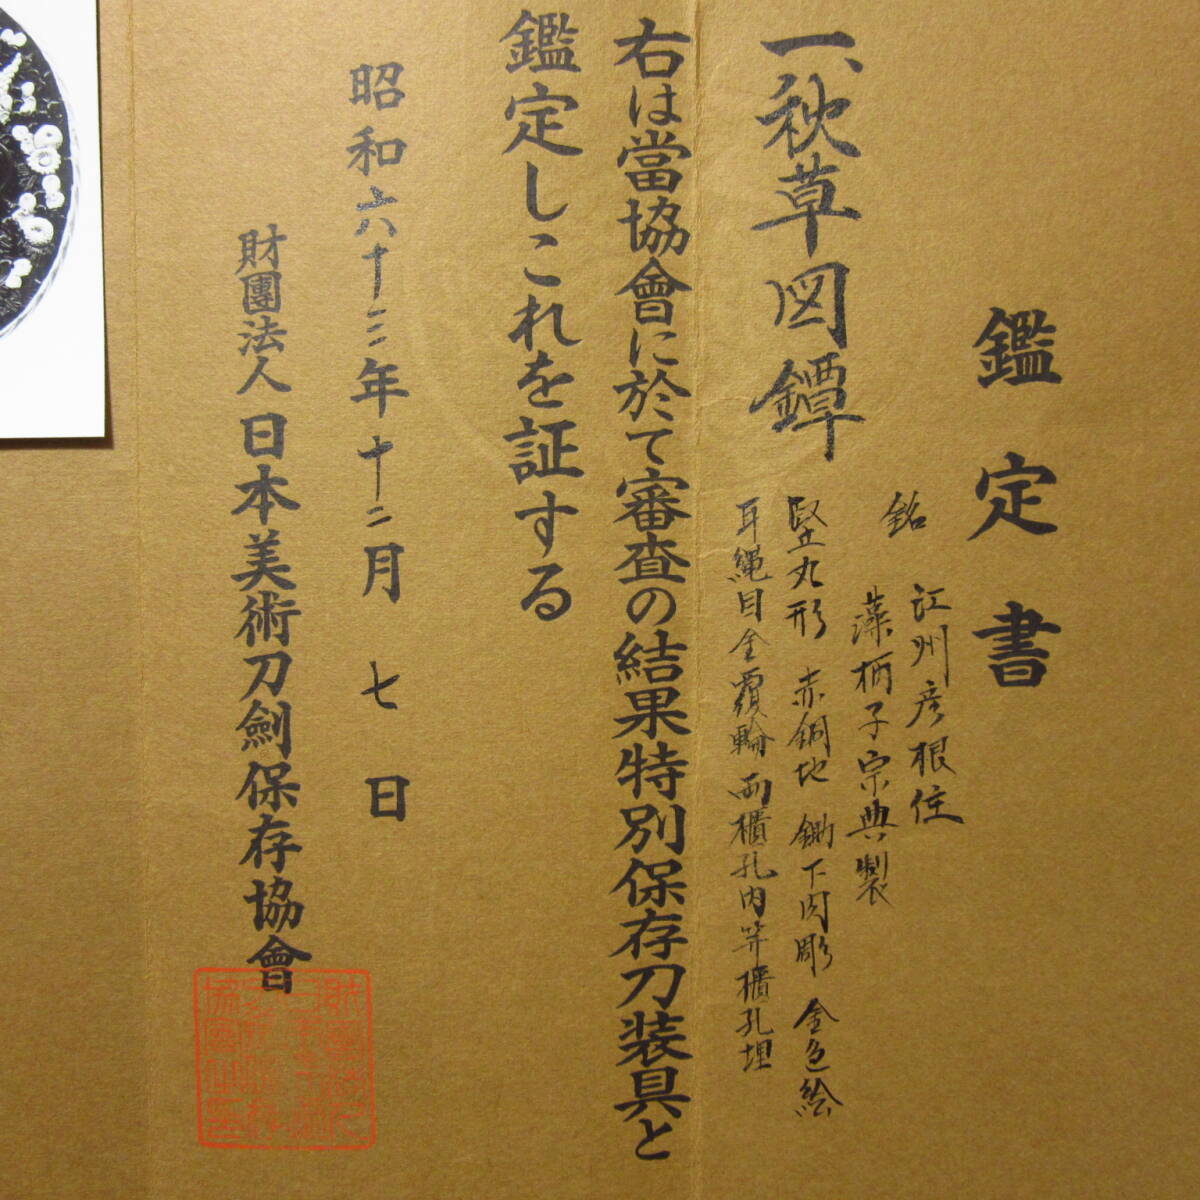 鑑定書
一、秋草図鐔
銘 江州彦根住
藻柄子宗典製
竪丸形 赤銅地 鋤下肉彫 金色絵
耳縄目金覆輪 両櫃孔内笄櫃孔埋
右は當協會に於て審査の結果特別保存刀装具と
鑑定しこれを証する
昭和六十三年十二月七日
財團法人日本美術刀劍保存協會